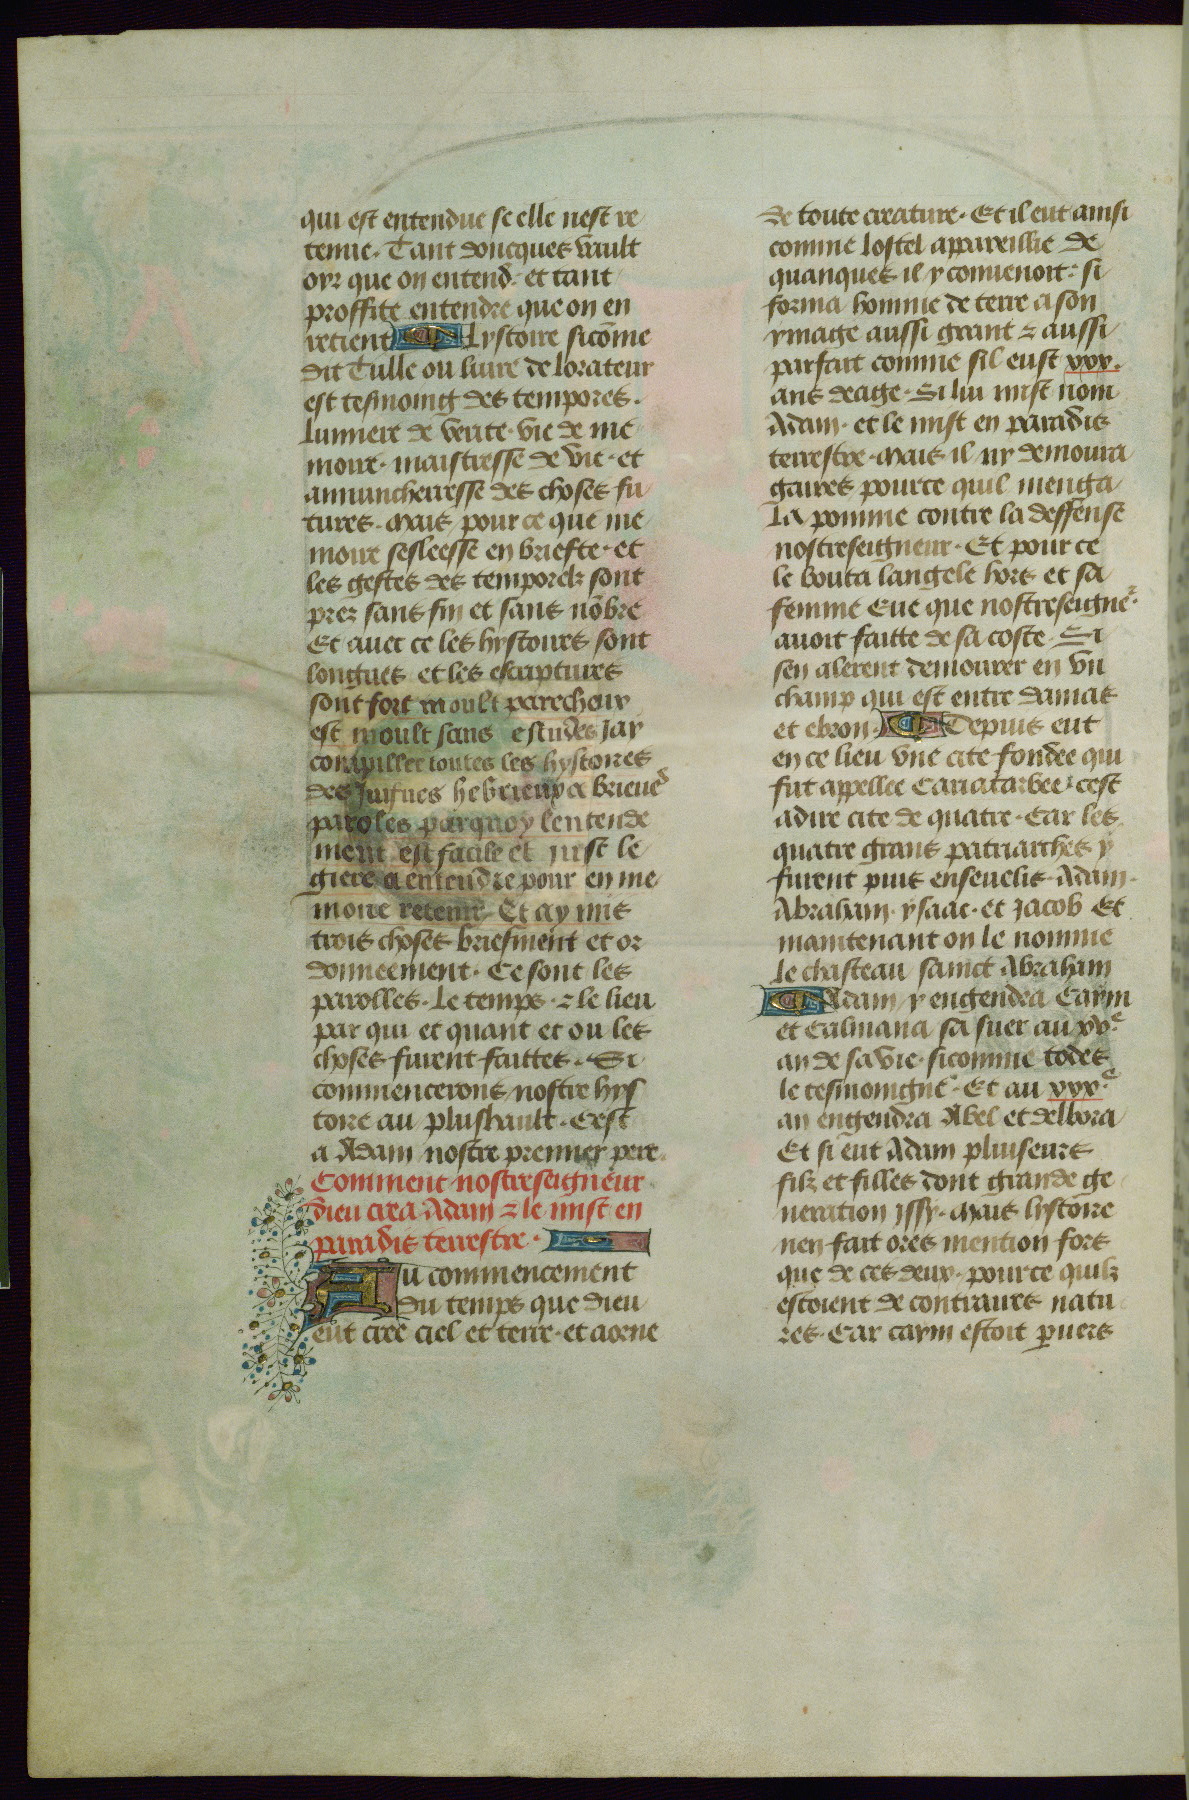 qui est entendue se elle nest re
tenue. Tant doncques vault
oyr que on entend. et tant
proffite entendre que on en
retient ¶ Lystoire sicõme
dit Tulle ou liure de lorateur
est tesmoing des tempores.
lumiere de verite. vie de me
moire. maistresse de vie. et
annuncheresse des choses fu
tures. Mais pour ce que me
moire sesleesse en briefte. et
les gestes des temporelz sont
prez sans fin et sans nõbre
Et auec ce les hystoires sont
longues et les escriptures
sont fort moult parecheux
est moult sans estudes Jay
compillee toutes les hystoires
des Juifues hebrieux a brieues
paroles parquoy lentende
ment est facile et
giere a entendre pour en me
moire retenir. Et ay mis
trois choses briefment et or
donneement. Ce sont les
parolles. Le temps. ⁊ le lieu
par qui et quant et ou les
choses furent faittes. Si
commencerons nostre hys
toire au plushault. Cest
a Adam nostre premier pere.
Comment nostreseigneur
dieu crea Adam ⁊ le mist en
paradis terrestre.
Au commencement
du temps que dieu
eut cree ciel et terre. et aorne
de toute creature. Et il eut ainsi
comme lostel appareillie de
quanques il y conuenoit. si
forma homme de terre a son
ymage aussi grant ⁊ aussi
parfait comme sil eust xxx.
ans deage. Si lui mist nom
Adam. et le mist en paradis
terrestre. Mais il ny demoura
gaires pource quil menga
La pomme contre la deffense
nostreseigneur. Et pour ce
le bouta langele hors et sa
femme Eue que nostreseigne͛
auoit faitte de sa coste. Si
sen alerent demourer en vn
champ qui est entre damas
et ebron. ¶ Depuis eut
en ce lieu vne cite fondee qui
fut appellee Cariatarbee. cest
adire cite de quatre. Car les
quatre grans patriarches y
furent puis enseuelis. Adam.
Abraham. ysaac. et Jacob Et
maintenant on le nomme
Le chasteau sainct Abraham
¶ Adam y engendra Caym
et Calmana sa suer au xv.ᵉ
an de sa vie. sicomme
le tesmoingne. Et au xxx.ᵉ
an engendra Abel et delbora
Et si eut Adam pluiseurs
filz et filles dont grande ge
neration Jssy. Mais lystoire
nen fait ores mention fors
que de ces deux. pource quilz
estoient de contraires natu
res. Car caym estoit puers